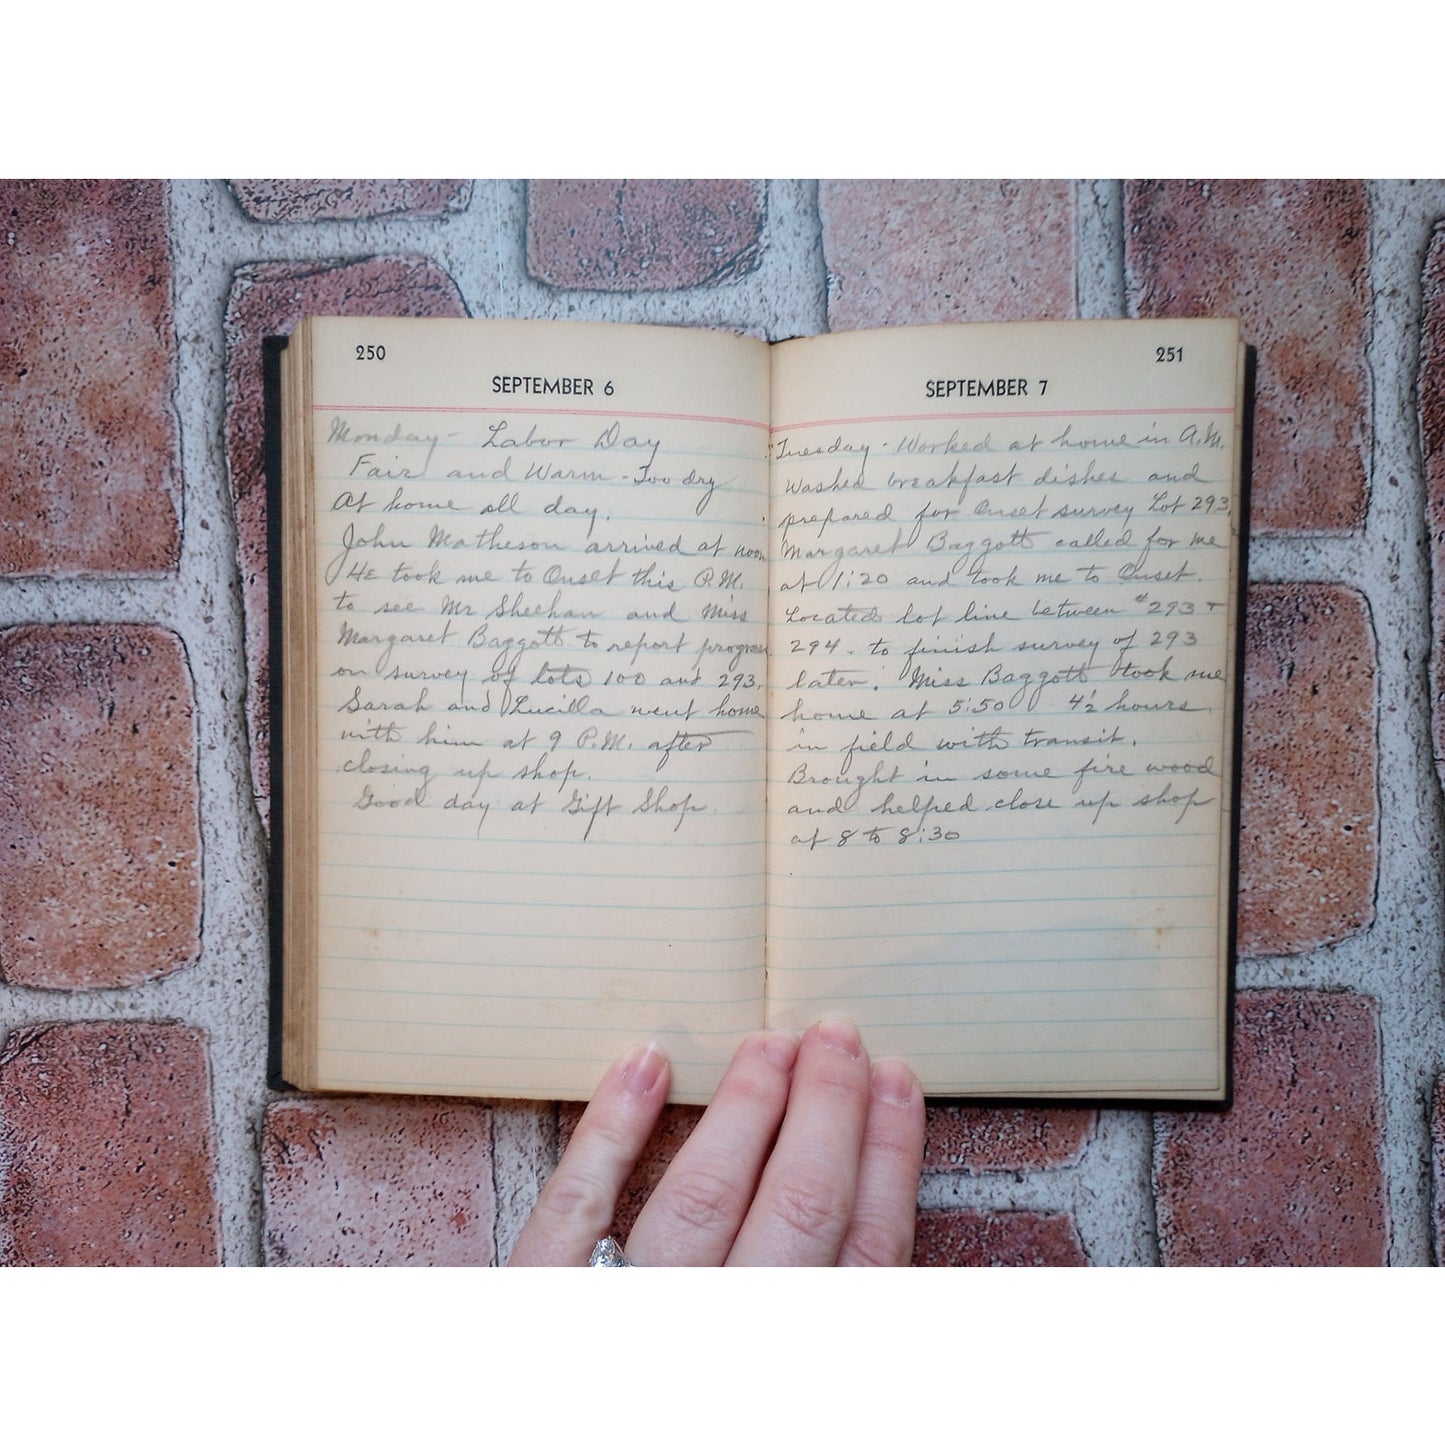 250
SEPTEMBER 6
Monday - Labor Day
Fair and Warm - Too dry
At home all day.
John Matheson arrived at noon
He took me to Onset this P.M.
to see Mr Sheehan and Miss
Margaret Baggott to report progress
on survey of lots 100 and 293.
Sarah and Lucilla went home
with him at 9 P.M. after
closing up shop.
Good day at Gift Shop.
251
SEPTEMBER 7
Tuesday - Worked at home in A.M.
Washed breakfast dishes and
prepared for Onset survey Lot 293.
Margaret Baggott called for me
at 1:20 and took me to Onset.
Located lot line between #293 +
294. to finish survey of 293
later. Miss Baggott took me
home at 5:50 4½ hours
in field with transit.
Brought in some fire wood
and helped close up shop
at 8 to 8:30